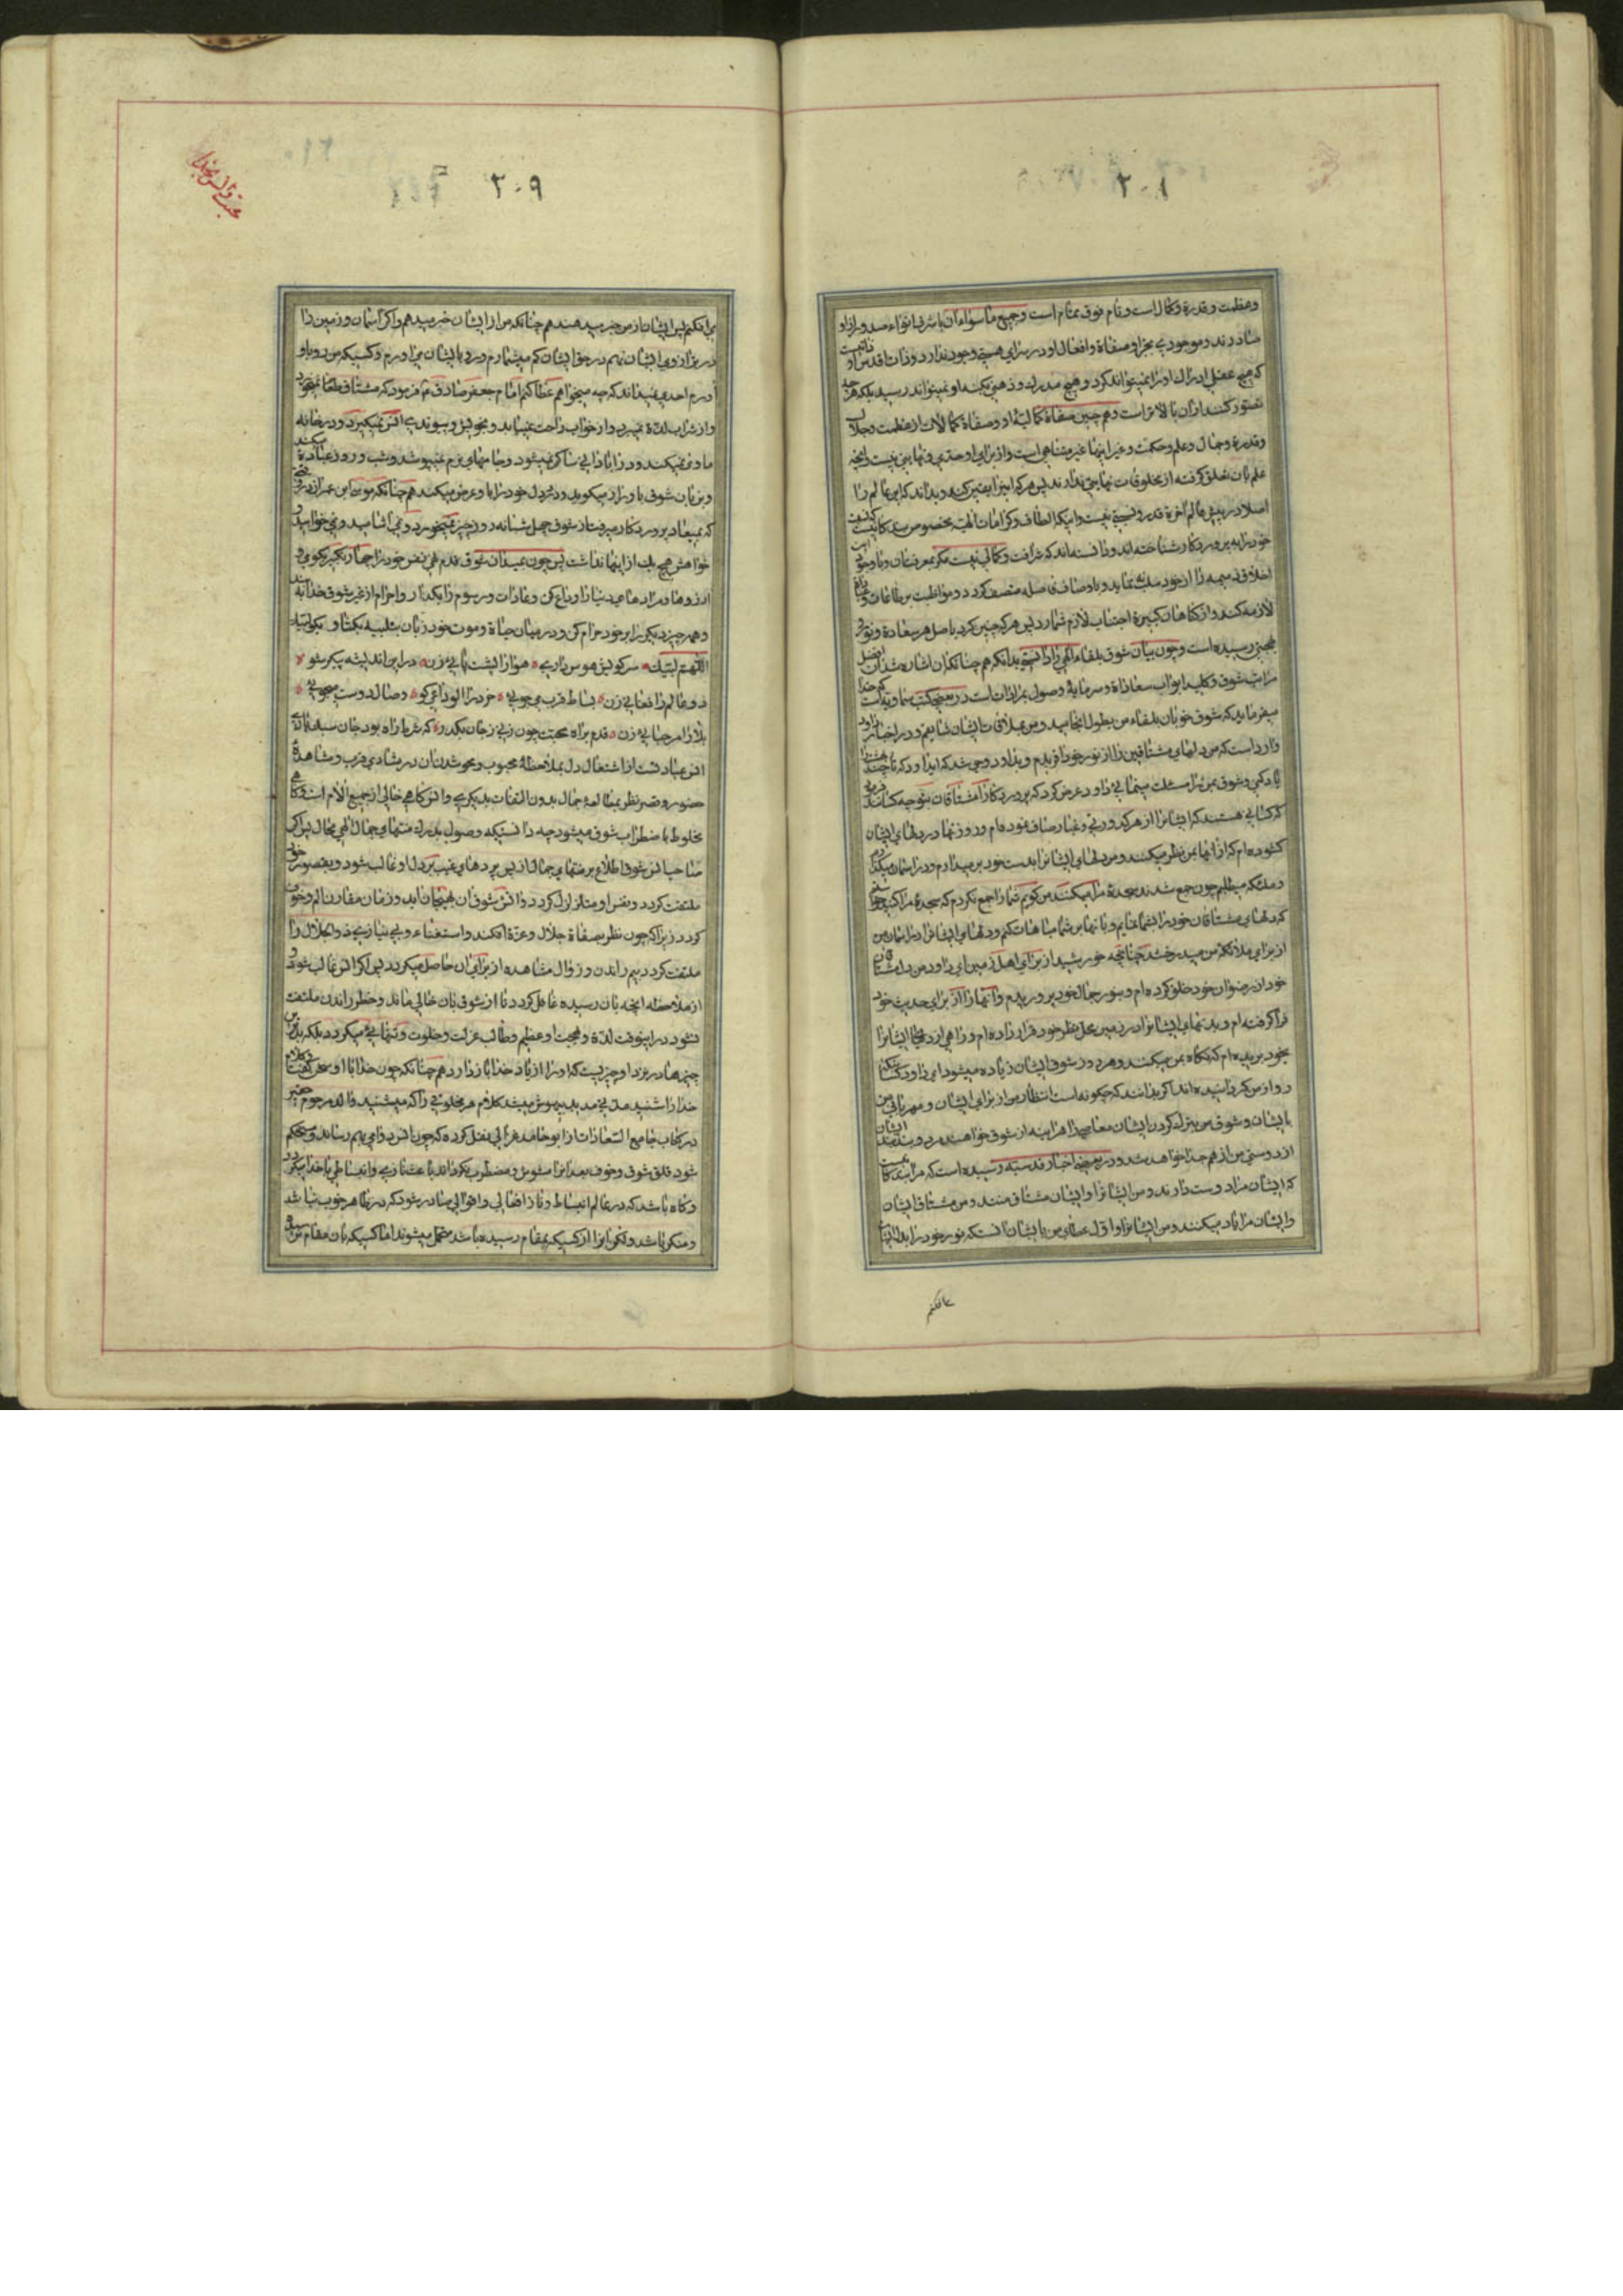 ۲۰۸
وعظمت و قدرة وکمال است و تمام فوق تمام است و جمیع ماسواء آن باشرف انواء صدور از او
صادرند و موجودی بجز او و صفاة و افعال او در سرای هستی وجود ندارد و ذات اقدس او ذاتیست
که هیچ عقلی ادراک او را نمیتواند کرد و هیچ مدرک و ذهنی بکنه او نمیتواند رسید بلکه هرچه
تصور کنند از آن بالاتر است و هم چنین صفاة کمالیهٔ او و صفاة کمالات از عظمت و جلال
و قدرة و جمال و علم و حکمت و غیر اینها غیر متناهی است و از برای او حدی و نهایتی نیست و آنچه
علم بآن تعلق گرفته از مخلوقات نهایتی ندارند پس هر که این را یقین کند و بداند که این عالم را
اصلا در پیش عالم آخرة قدر و نسبتی نیست و اینکه الطاف و کرامات الهیه مخصوص بندگانیست که
خود را به پروردگار شناخته اند و دانسته اند که شرافت و کمالی نیست مگر بمعرفتان و با وجود این
اخلاق ذمیمه را از خود سلب نماید و باوصاف فاضله متصف گردد و مواظبت بر طاعات و
لازمه کند و از گناهان کبیره اجتناب لازم شمارد پس هر که چنین کرد باصل هر سعادة و نور و
بهجتی رسیده است و چون بیان شوق بلقاء الهی را دانستی بدانکه هم چنانکه بآن اشاره شد آن افضل
مراتب شوق و کلید ابواب سعاداة و سرمایهٔ وصول بمرادات است در بعضی کتب سماویه است که خدا
میفرماید که شوق خوبان بلقاء من بطول انجامید و من بملاقات ایشان شایقم و در اخبار داود
وارد است که من دلهای مشتاقین را از نور خود آفریدم و بداود وحی شد که ای داود که تا چند بهشت را
یاد کنی و شوق بمن را مسئلت مینمائی داود عرض کرد که پروردگارا مشتاقان بتو چه کسانند فرمود
که کسانی هستند که ایشانرا از هر کدورتی و غبار صاف نموده ام و روزنها در دلهای ایشان
کشوده ام که از آنها بمن نظر میکنند و من دلهای ایشانرا بدست خود بر میدارم و در آسمان میگذارم
و ملئکه میطلبم چون جمع شدند سجدهٔ مرا میکنند من گویم شما را جمع نکردم که سجدهٔ مرا کنید خواستم
که دلهای مشتاقان خود را بشما بنمایم و بآنها بر شما مباهات کنم و دلهای ایشانرا در آسمان من
از برای ملائکهٔ من میدرخشد چنانچه خورشید از برای اهل زمین ای داود من دل مشتاقان
خود از رضوان خود خلق کرده ام و بنور جمال خود پروریدم و آنها را از برای حدیث خود
فرا گرفته ام و بدنهای ایشانرا در زمین محل نظر خود قرار داده ام و راهی از دلهای ایشانرا
بخود بریده ام که نگاه بمن میکنند و هر روز شوق ایشان زیاده میشود ای داود کسانیکه
رو از من گردانیده اند اگر بدانند که چگونه است انتظار من از برای ایشان و مهربانی من
بایشان و شوق من بترک کردن ایشان معاصی را هر آینه از شوق خواهند مرد و بند بند ایشان
از دوستی من از هم جدا خواهد شد و در بعضی اخبار قدسیه رسیده است که مرا بندگانیست
که ایشان مرا دوست دارند و من ایشانرا و ایشان مشتاق منند و من مشتاق ایشان
و ایشان مرا یاد میکنند و من ایشانرا و اول عطای من بایشان آنست که نور خود را بدل ایشان
۲۰۹
می افکنم پس ایشان از من خبر میدهند هم چنانکه من از ایشان خبر میدهم و اگر آسمان و زمین را
در برازوی ایشان نهم در حق ایشان کم میشمارم و رو بایشان می آورم و کسیکه من رو باو
آورم احدی نمیداند که چه میخواهم عطا کنم امام جعفر صادق ع فرمود که مشتاق طعام نمیخورد
و از شراب لذة نمیبرد و از خواب راحت نمییابد و بخویش و پیوندی انس نمیگیرد و در خانه
ماوی نمیکند و در آبادانی ساکن نمیشود و جامهای نرم نمیپوشد و شب و روز عبادة میکند
و بزبان شوق با او راز میگوید و در دل خود را باو عرض میکند هم چنانکه موسی ابن عمران در وقتی
که بمیعاد پروردگار میرفت از شوق چهل شبانه روز چیزی نمیخورد و نمی آشامید و نمیخوابید و
خواهش هیچ یک از اینها نداشت پس چون بمیدان شوق قدم نهی نفس خود را چهار تکبیر بگوی و
آرزوها و مرادهای دنیا را وداع کن و عادات و رسوم را بگذار و احرام از غیر شوق خدا بند
و همه چیز دیگر را بر خود حرام کن و در میان حیاة و موت خود زبان بتلبیه بگشا و بگو لبیک
اللهم لبیک سر کویش هوس داری هوا را پشت پائی زن در این اندیشه یکرو شو
دو عالم را قفائی زن بساط قرب می جوئی خرد را الوداعی گو وصال دوست میجوئی
بلا را مرحبائی زن قدم براه محبت چون زنی ز جان بگذر که شرط راه بود جان سبیل
انس عبارتست از اشتغال دل بملاحظهٔ محبوب و محو شدن آن در شادی قرب و مشاهدهٔ
حضور و قصر نظر بمطالعهٔ جمال بدون التفات بدیگری و انس گاهی خالی از جمیع آلام است و گاهی
مخلوط باضطراب شوق میشود چه دانستیکه وصول بدرک منتهای جمال الهی محال پس اگر
صاحب انس شوق اطلاع بر منتهای جمال از پس پردهای غیب بر دل او غالب شود و بقصور خود
ملتفت گردد و نفس او متزلزل گردد و آتش شوق آن بهیجان آید و زمان مقارن الم و خوف
گردد زیرا که چون نظر بصفاة جلال و عزة افکند و استغناء و بی نیازی ذوالجلال را
ملتفت گردد بیم راندن و زوال مشاهده از برای آن حاصل میگردد پس اگر انس غالب شود و
از ملاحظه آنچه بآن رسیده غافل گردد تا از شوق بآن خالی ماند و خطر راندن ملتفت
نشود در اینوقت لذة و بهجت او عظیم و طالب عزلت و خلوت و تنهائی میگردد بلکه بدترین
چیزها در نزد او چیزیست که او را از یاد خدا باز دارد هم چنانکه چون خدا با او سخن گفت و کلام
خدا را شنید مدتی مدید بیهوش میشد کلام هر مخلوقی را که میشنید والد مرحوم حقیر
در کتاب جامع السعادات از ابو حامد غزالی نقل کرده که چون انس دوامی بهم رساند و مستحکم
شود قلق شوق و خوف بعد آنرا مشوش و مضطرب نگرداند باعث نازی و انبساطی با خدا میگردد
و گاه باشد که در عالم انبساط و ناز افعالی و اقوالی صادر شود که در ظاهر خوب نباشد
و منکر باشد و لکن آنرا از کسیکه بمقام رسیده باشد متحمل میشوند اما کسیکه بآن مقام نرسیده